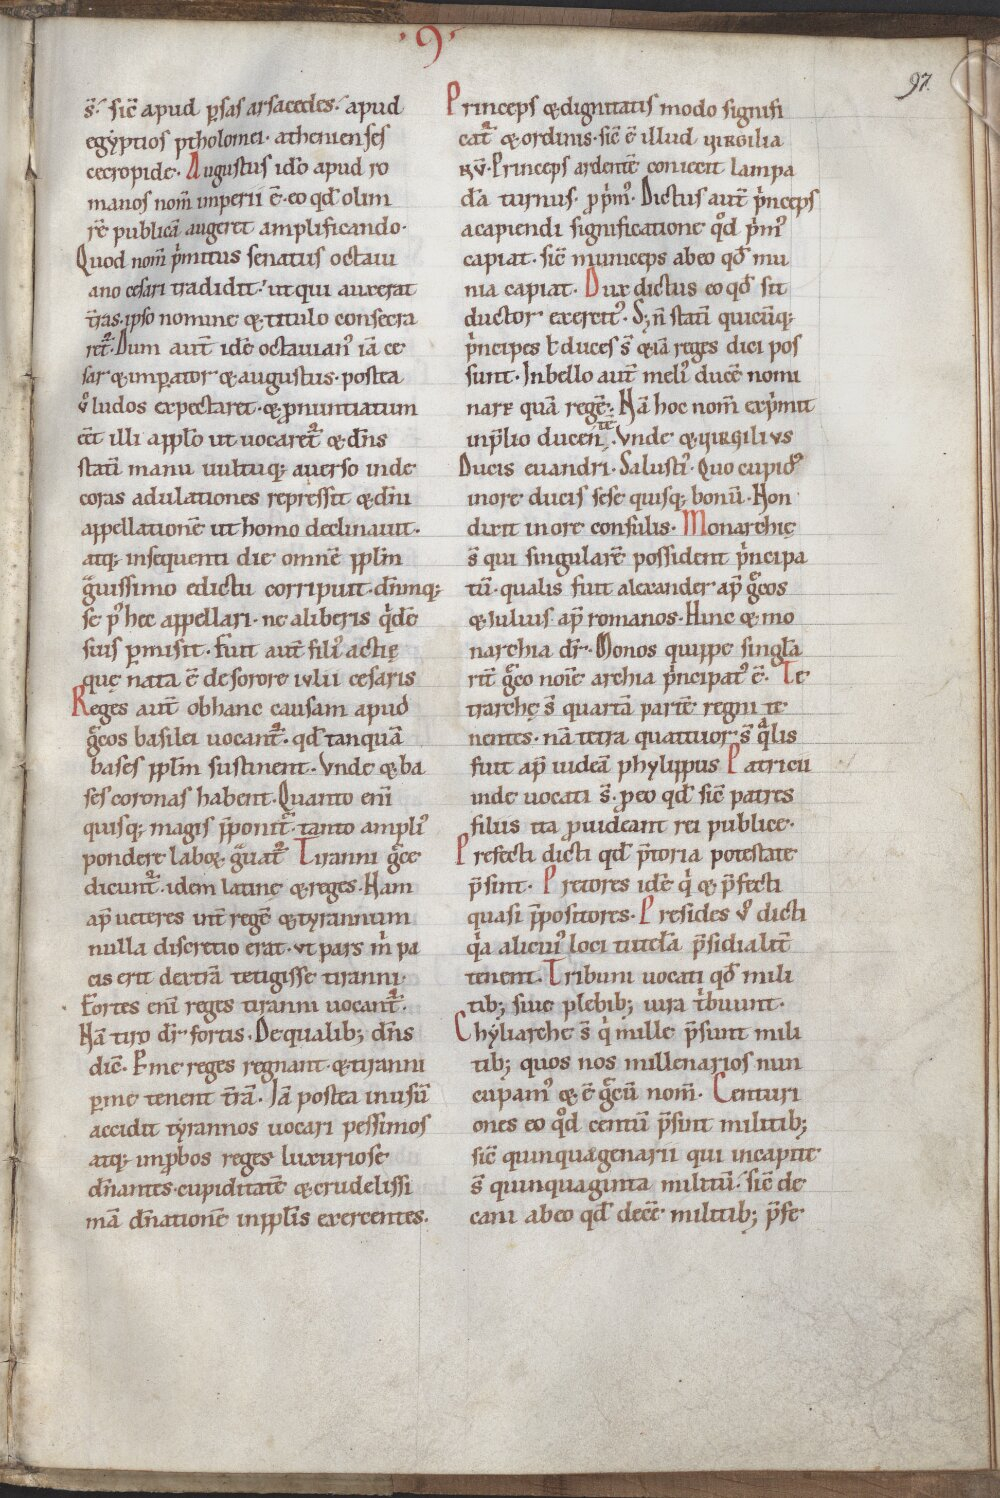 ·9·
97.
s̄. sic̄ apud p̲sas arsacedes. apud
egẏptios ptholomei· athenienses
cecropide· Augustus id̄o apud ro
manos nom̄ imperii ē· eo qd̄ olim
rē publicā augeret amplificando·
Quod nom̄ p̍mitus senatus octaui
ano cesari tradidit. ut qui auxerat
t̄ras· ipso nomine & titulo consecra
ret᷑· Dum aut̄ idē octauian᷒ iā ce
sar & imp̲ator & augustus· postea
u̾ ludos expectaret· & p̲nuntiatum
eēt illi app̄lo ut uocaret᷑ & dn̄s
statī manu uultuq; auerso inde
coras adulationes repressit & dn̄i
appellationē ut homo declinauit·
atq; insequenti die omnē pp̄lm
g̾uissimo edictu corripuit· dn̄mq;
se p᷒ hec appellari· ne aliberis q̍dē
suis p̲misit· Fuit aut̄ fili᷒ actię
quę nata ē de sorore iulii cesaris
Reges aut̄ obhanc causam apud
g̾cos basilei uocant᷑· qd̄ tanquā
bases pp̄lm sustinent· Vnde & ba
ses coronas habent· Quanto enī
quisq; magis p̄ponit᷑· tanto ampli᷒
pondere laboꝝ g̾uat᷑ Tiranni g̾ce
dicunt᷑· idem latinę & reges· Nam
ap̄ ueteres int̄ regē & tyrannum
nulla discretio erat· ut pars m̍ pa
cis erit dextrā tetigisse tiranni·
Fortes enī reges tiranni uocant᷑·
Nā tiro dr̄ fortis· De qualib; dn̄s
dic̄· P̲ me reges regnant· & tiranni
p̲ me tenent t̄rā· Iā postea inusū
accidit tyrannos uocari pessimos
atq; imp̲bos reges luxuriose
dn̄antes· cupiditatē & crudelissi
mā dn̄ationē inpp̄lis exercentes·
Princeps & dignitatis modo signifi
cat᷑ & ordinis· sic̄ ē illud uirgilia
nū· Princeps ardentē coniecit lampa
dā turnus· p̲ p̍m᷒· Dictus aut̄ p̍nceps
acapiendi significatione q̊d p̍m᷒
capiat· sic̄ municeps abeo qd̄ mu
nia capiat· Dux dictus eo qd̄ sit
ductor exercit᷒· S; n̄ statī quicūq;
p̍ncipes ł duces s̄ & iā reges dici pos
sunt· Inbello aut̄ meli᷒ ducē nomi
nare quā regē· Nā hoc nom̄ exp̍mit
inp̄lio ducentē· Vnde & uirgilius
Ducis euandri· Salusti᷒· Quo cupid᷒
inore ducis sese quisq; bonū· Non
dixit inore consulis· Monarchię
s̄ qui singularē possident p̍ncipa
tū· qualis fuit alexander ap̄ g̾cos
& iulius ap̄ romanos· Hinc & mo
narchia dr̄· Monos quippe singla̾
rit̄ g̾co noīe archia p̍ncipat᷒ ē· Te
trarchę s̄ quartā partē regni te
nentes· nā tetra quattuor s̄ q̾lis
fuit ap̄ iudeā phylippus Patricii
inde uocati s̄· p̲eo qd̄ sic̄ patres
filiis ita p̲uideant rei publice·
Prefecti dicti qd̄ p̄toria potestate
p̄sint· Pretores idē q̍ & p̄fecti
quasi p̄positores· Presides u̾ dicti
q̍a alicui᷒ loci tutelā p̄sidialit̄
tenent· Tribuni uocati qd̄ mili
tib; siue plebib; iura t̍buunt·
Chyliarche s̄ q̍ mille p̄sunt mili
tib; quos nos millenarios nun
cupam᷒ & ē g̾cū nom̄· Centuri
ones eo q̊d centū p̄sint militib;
sic̄ quinquagenarii qui incapite
s̄ quinquaginta militū· sic̄ de
cani abeo qd̄ decē militib; p̄fe